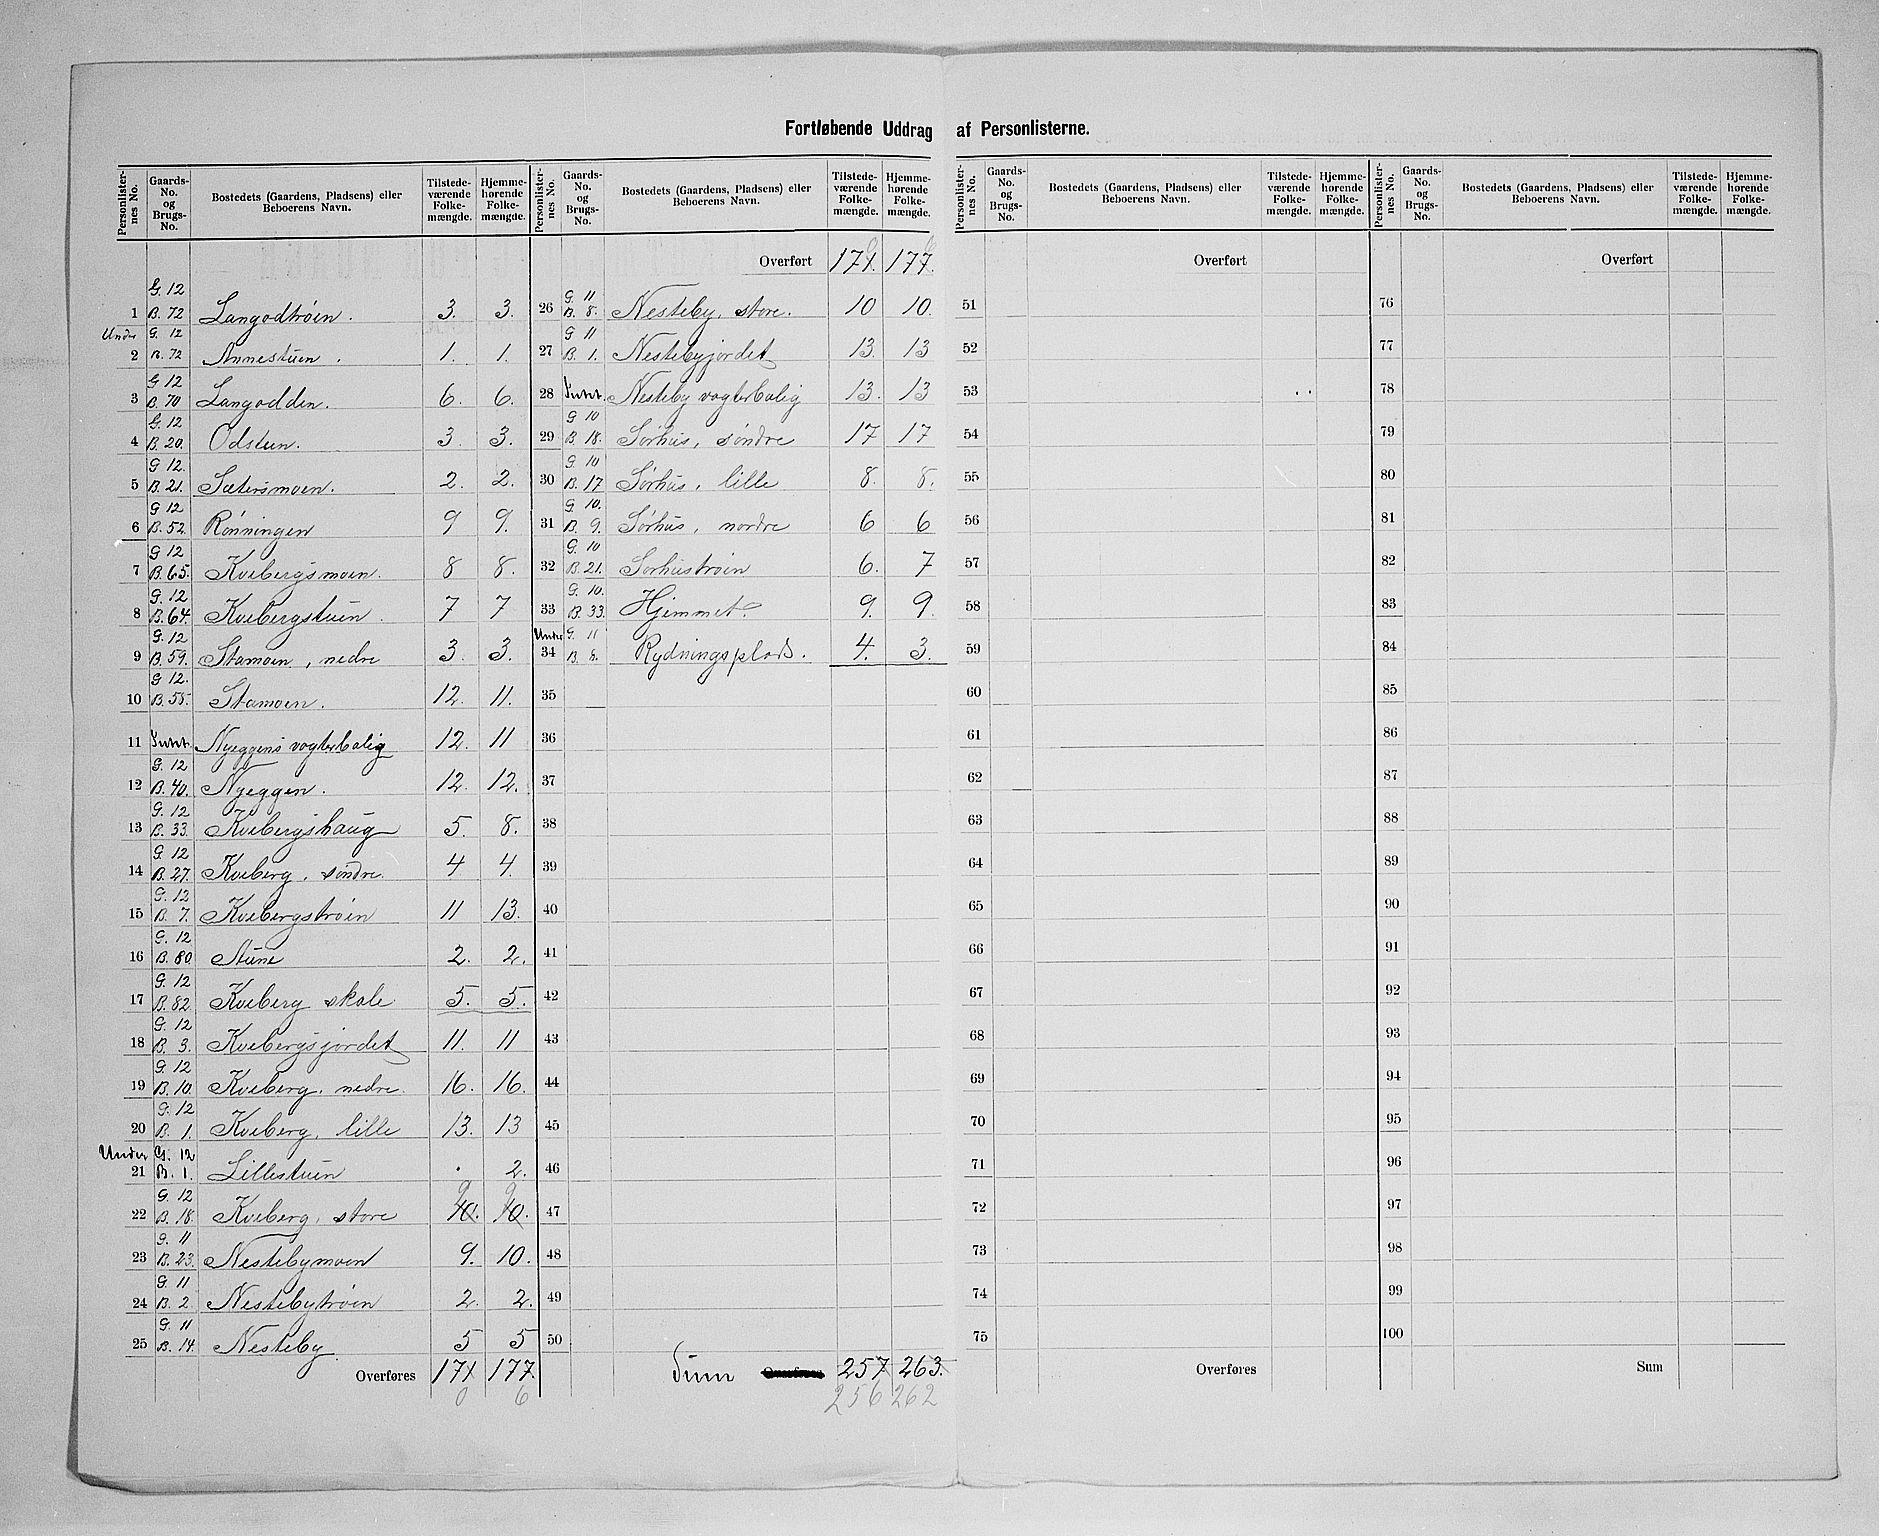 Fortløbende Uddrag af Personlisterne.
Personlister-nes No. Gaards-No. og Brugs-No. Bostedets (Gaardens, Pladsens) eller Beboerens Navn. Tilstede-værende Folke-mængde. Hjemme-hørende Folke-mængde.
1 G. 12 B. 72 Langodtrøen. 3. 3.
Under 2 G. 12 B. 72 Annestuen. 1. 1.
3 G 12 B. 70 Langodden. 6. 6.
4 G. 12 B. 20. Odstuen. 3. 3.
5 G 12. B. 21. Sætersmoen. 2. 2.
6 G 12 B. 52. Rønningen 9 9.
7 G 12 B. 65. Kvebergsmoen. 8 8.
8 G. 12 B. 64. Kvebergstuen. 7 7
9 G. 12 B. 59. Stamoen, nedre 3. 3.
10 G 12. B. 58. Stamoen. 12. 11.
11 Nyeggens vogterbolig 12. 11
12 G. 12 B. 40. Nyeggen. 12. 12.
13 G. 12 B. 33. Kvebergshaug 5. 8.
14 G. 12 B. 27. Kveberg, søndre. 4 4.
15 G. 12 B. 7. Kvebergstrøen 11 13.
16 G. 12 B. 80. Stune 2. 2.
17 G. 12 B. 82. Kveberg skole 5. 5.
18 G. 12 B. 3. Kvebergsjordet 11. 11
19 G. 12 B. 10. Kveberg, nedre. 16. 16.
20 G. 12 B. 1. Kveberg, lille 13. 13
Under 21 G. 12 B. 1. Lillestuen . 2.
22 G. 12 B. 18. Kveberg, store 10. 9 10. 9
23 G. 11 B. 23. Nestebymoen 9. 10.
24 G. 11 B. 2. Nestebytrøen 2. 2.
25 G. 11 B. 14. Nesteby 5 5
Overføres 171 177.
0 6
Personlister-nes No. Gaards-No. og Brugs-No. Bostedets (Gaardens, Pladsens) eller Beboerens Navn. Tilstede-værende Folke-mængde. Hjemme-hørende Folke-mængde.
Overført 171. 0 177. 6
26 G. 11 B. 8. Nesteby, store. 10 10.
27 G 11 B. 1. Nestebyjordet 13. 13
28 Nesteby vogterbolig 13. 13
29 G 10 B 18. Sørhus, søndre 17 17
30 G. 10 B. 17 Sørhus, lille 8. 8.
31 G. 10. B. 9. Sørhus, nordre 6 6
32 G. 10 B. 21. Sørhustrøen 6. 7
33 G. 10. B. 33. Hjemmet. 9. 9.
Under 34 G. 11 B. 8. Rydningsplads. 4. 3.
35
36
37
38
39
40
41
42
43
44
45
46
47
48
49
50
Sum 257 263.
256 262
Personlister-nes No. Gaards-No. og Brugs-No. Bostedets (Gaardens, Pladsens) eller Beboerens Navn. Tilstede-værende Folke-mængde. Hjemme-hørende Folke-mængde.
Overført
51
52
53
54
55
56
57
58
59
60
61
62
63
64
65
66
67
68
69
70
71
72
73
74
75
Overføres
Personlister-nes No. Gaards-No. og Brugs-No. Bostedets (Gaardens, Pladsens) eller Beboerens Navn. Tilstede-værende Folke-mængde. Hjemme-hørende Folke-mængde.
Overført
76
77
78
79
80
81
82
83
84
85
86
87
88
89
90
91
92
93
94
95
96
97
98
99
100
Sum